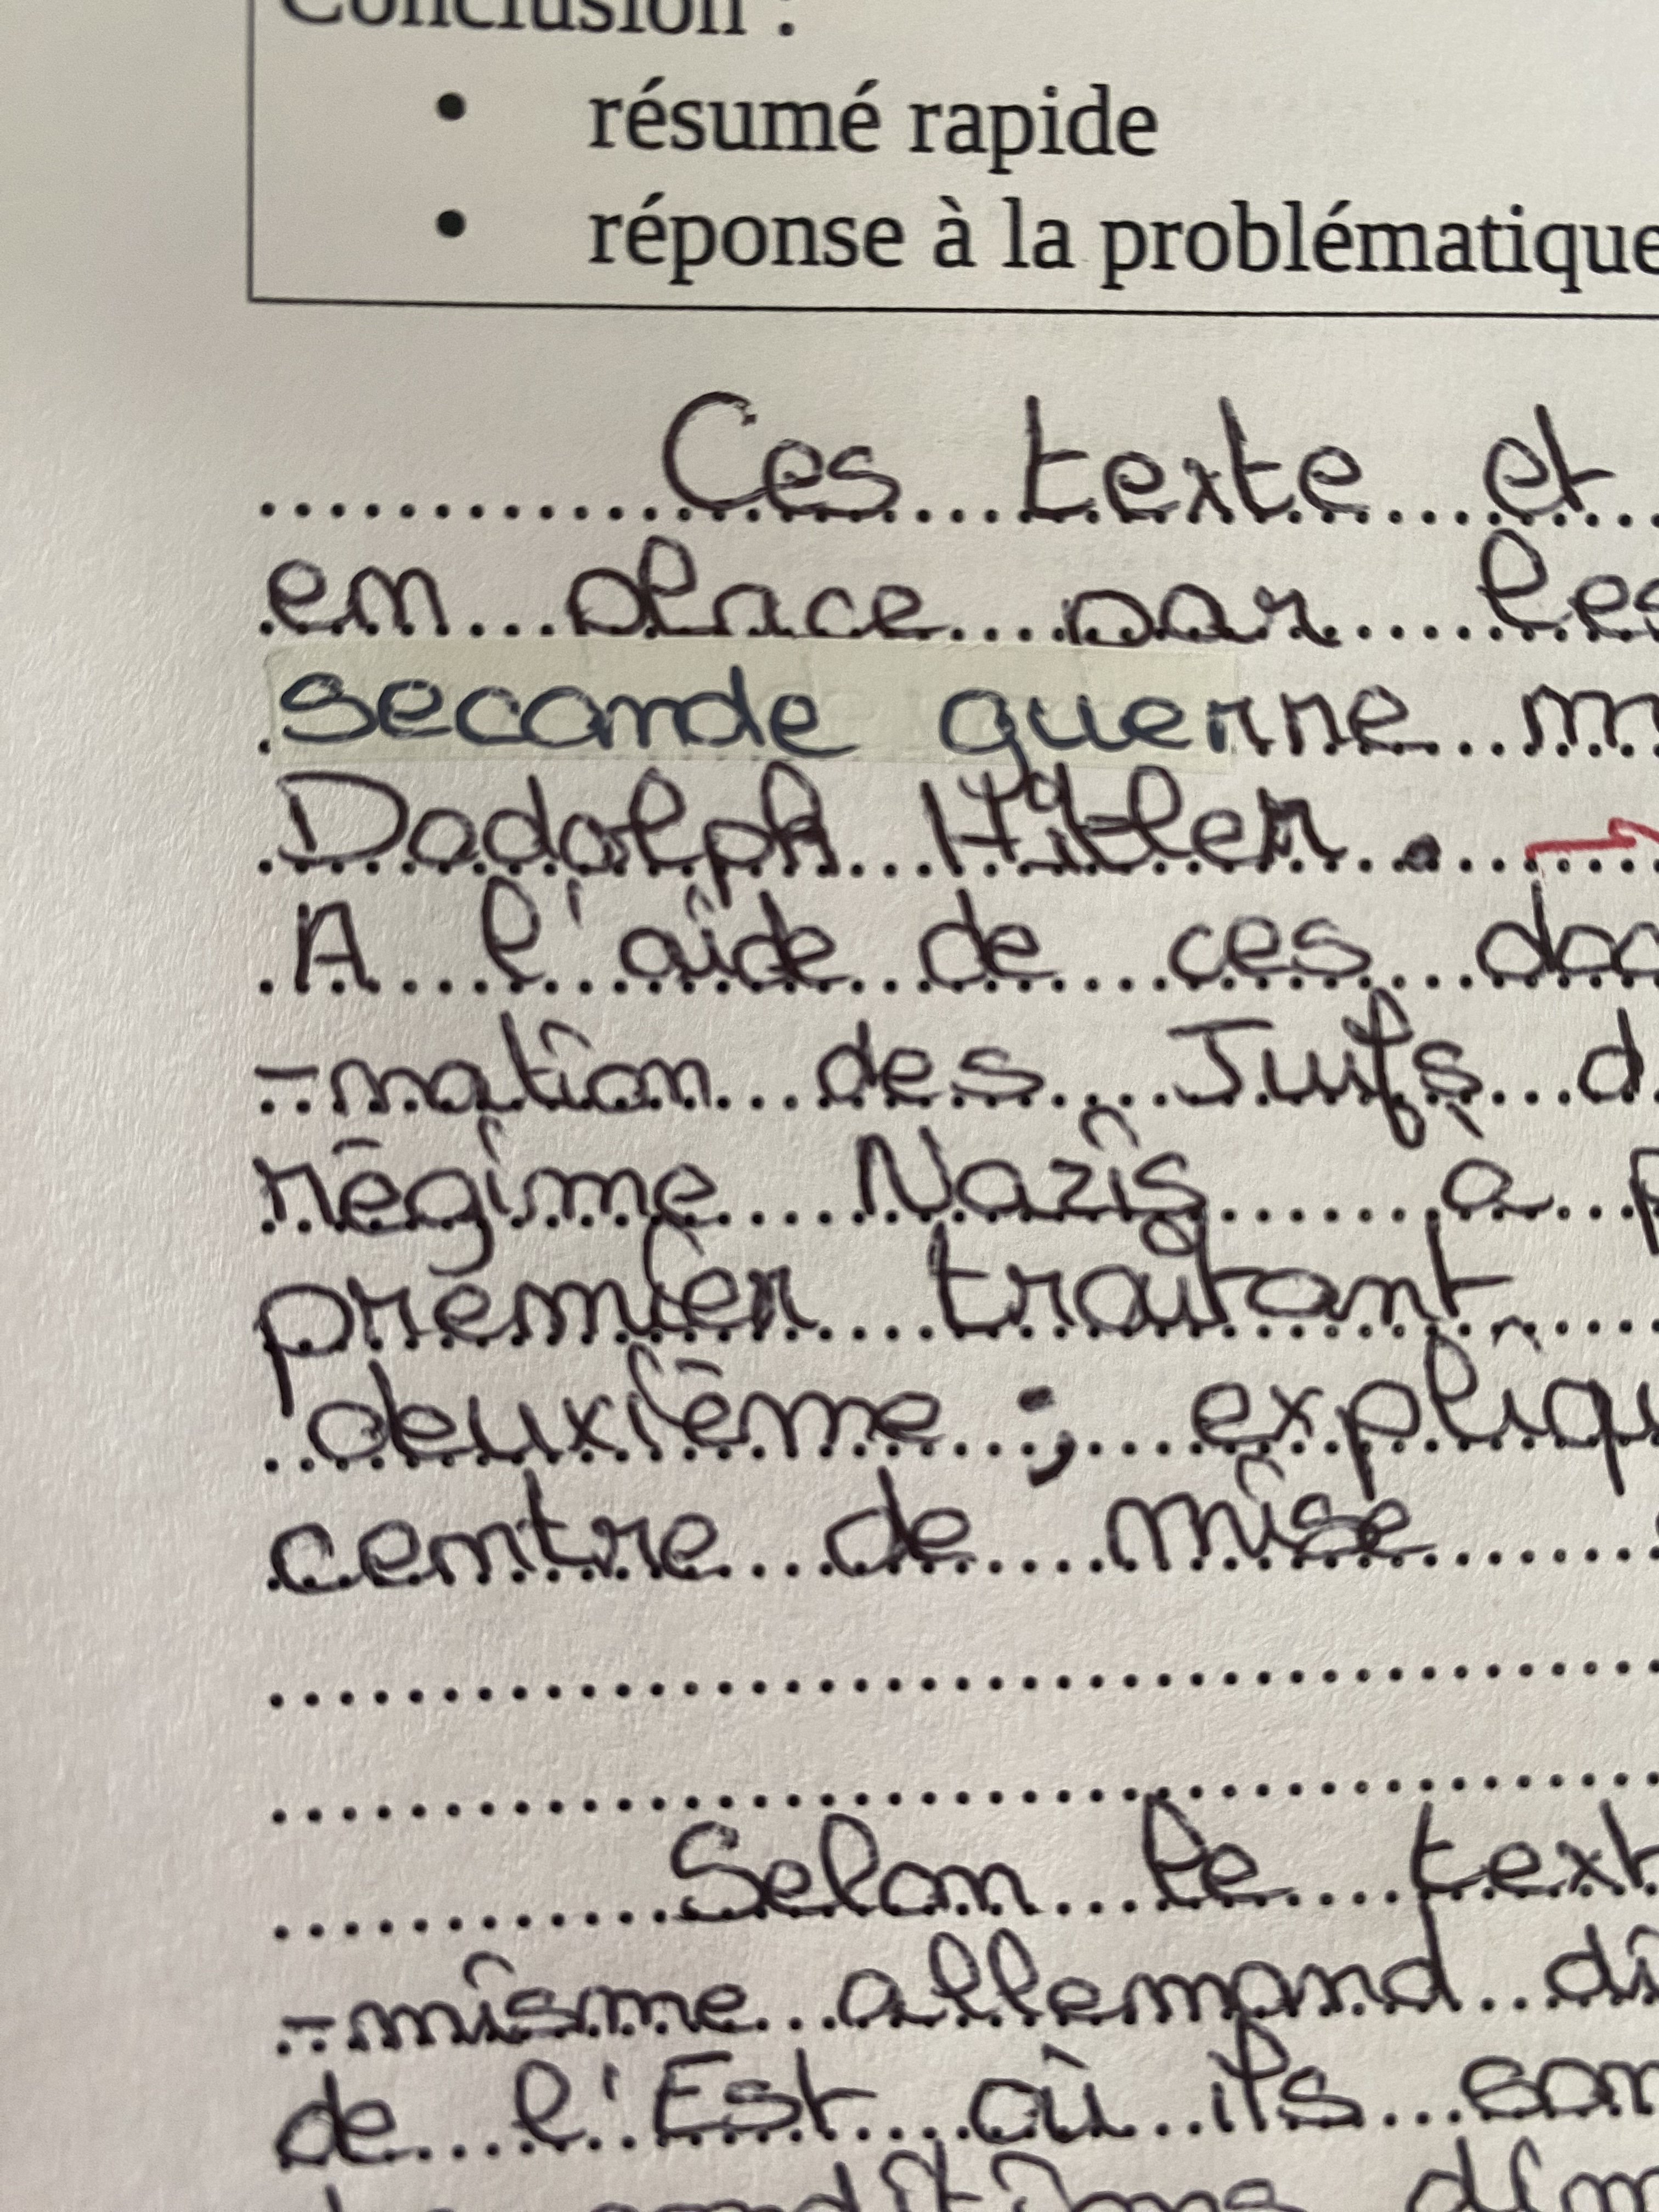 Conclusion :
• résumé rapide
• réponse à la problématique
Ces texte et
en place par les
seconde guerre m
Dadolph Hitler.
A l'aide de ces doc
-mation des Juifs d
régime Nazis à p
premier traitant
deuxième ; expliqu
centre de mise
Selon le text
-misme allemand di
de l'Est où ils son